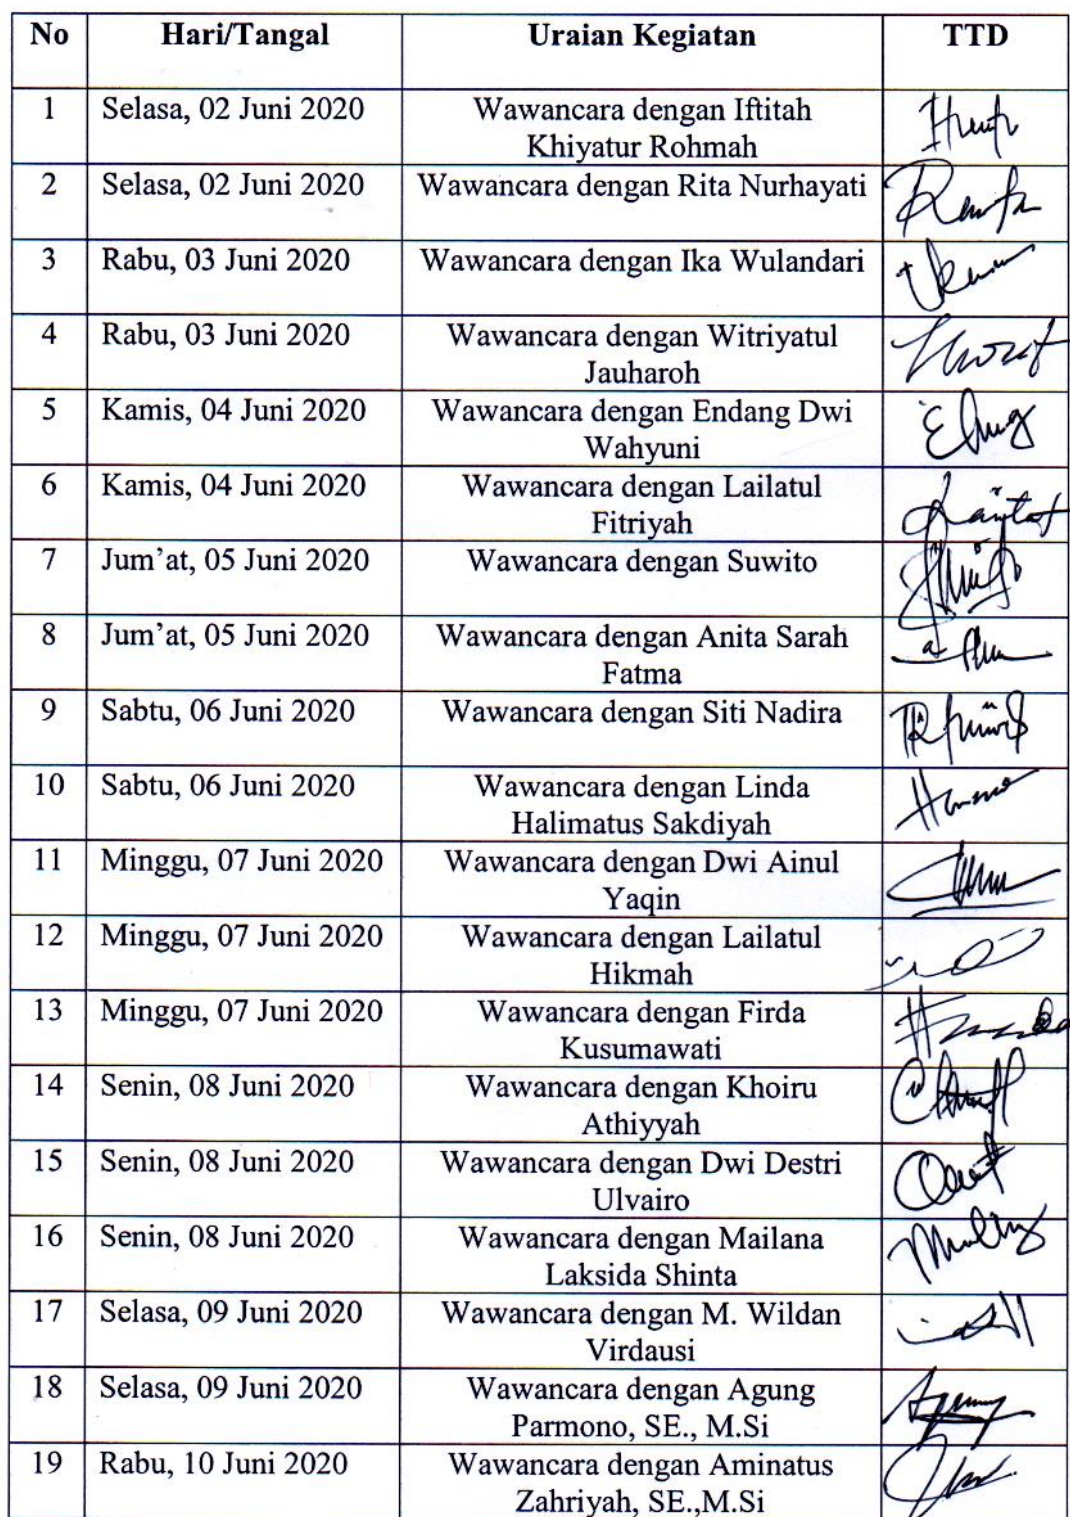 No Hari/Tangal Uraian Kegiatan TTD
1 Selasa, 02 Juni 2020 Wawancara dengan Iftitah
Khiyatur Rohmah
2 Selasa, 02 Juni 2020 Wawancara dengan Rita Nurhayati
3 Rabu, 03 Juni 2020 Wawancara dengan Ika Wulandari
4 Rabu, 03 Juni 2020 Wawancara dengan Witriyatul
Jauharoh
5 Kamis, 04 Juni 2020 Wawancara dengan Endang Dwi
Wahyuni
6 Kamis, 04 Juni 2020 Wawancara dengan Lailatul
Fitriyah
7 Jum'at, 05 Juni 2020 Wawancara dengan Suwito
8 Jum'at, 05 Juni 2020 Wawancara dengan Anita Sarah
Fatma
9 Sabtu, 06 Juni 2020 Wawancara dengan Siti Nadira
10 Sabtu, 06 Juni 2020 Wawancara dengan Linda
Halimatus Sakdiyah
11 Minggu, 07 Juni 2020 Wawancara dengan Dwi Ainul
Yaqin
12 Minggu, 07 Juni 2020 Wawancara dengan Lailatul
Hikmah
13 Minggu, 07 Juni 2020 Wawancara dengan Firda
Kusumawati
14 Senin, 08 Juni 2020 Wawancara dengan Khoiru
Athiyyah
15 Senin, 08 Juni 2020 Wawancara dengan Dwi Destri
Ulvairo
16 Senin, 08 Juni 2020 Wawancara dengan Mailana
Laksida Shinta
17 Selasa, 09 Juni 2020 Wawancara dengan M. Wildan
Virdausi
18 Selasa, 09 Juni 2020 Wawancara dengan Agung
Parmono, SE., M.Si
19 Rabu, 10 Juni 2020 Wawancara dengan Aminatus
Zahriyah, SE.,M.Si